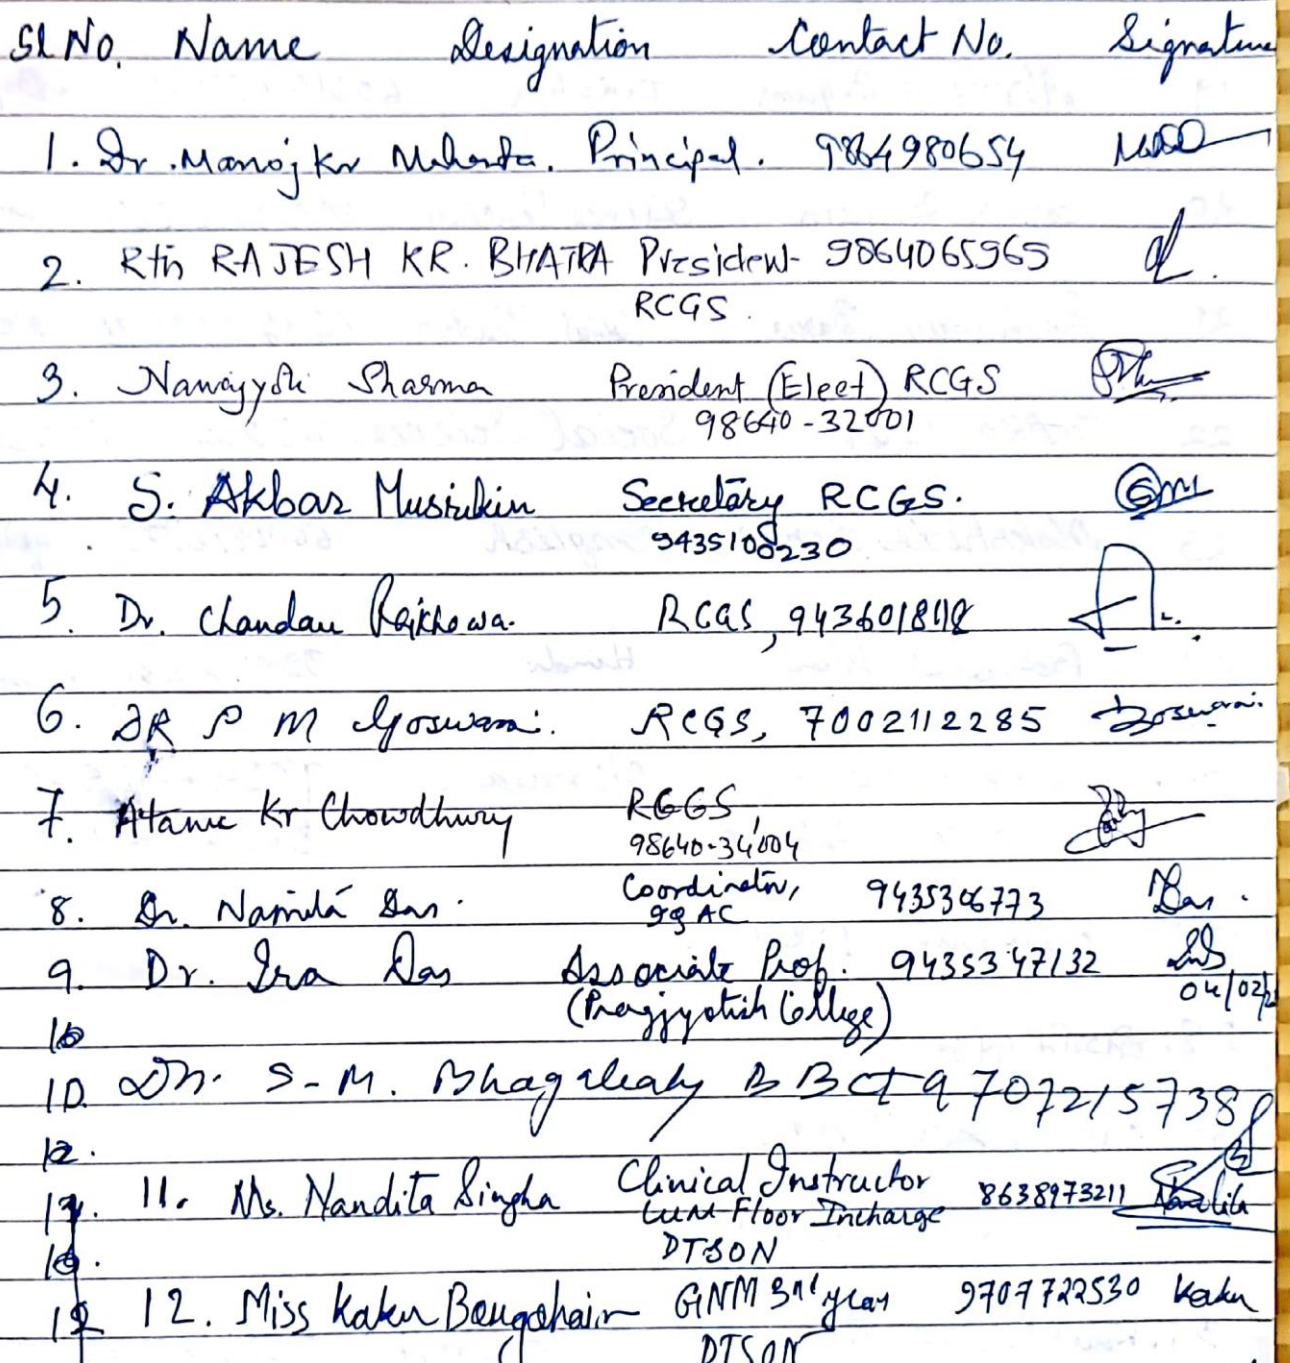 Sl No. Name Designation Contact No. Signature
1. Dr. Manoj Kr Mahanta. Principal. 9864980654
2. Rtn RAJESH KR. BHATRA President 9864065965
RCGS.
3. Navajyoti Sharma President (Elect) RCGS
98640-32001
4. S. Akbar Secretary RCGS.
9435108230
5. Dr. Chandan Rajkhowa. RCGS,
6. DR P M Goswami. RCGS, 7002112285 Goswami.
7. Kr Chowdhury RCGS,
98640-34004
8. Dr. Namita Das. Coordinator, 9435306773 Das.
IQAC
9. Dr. Ira Das Associate Prof. 9435347132
(Pragjyotish College) 04/02/2
10
10. Dr. S-M. 9707215738
12.
11. Ms. Nandita Singha Clinical Instructor 8638973211 Nandita
cum Floor Incharge
DTSON
12. Miss Kaku GNM 3rd year 9707722530 Kaku
DTSON